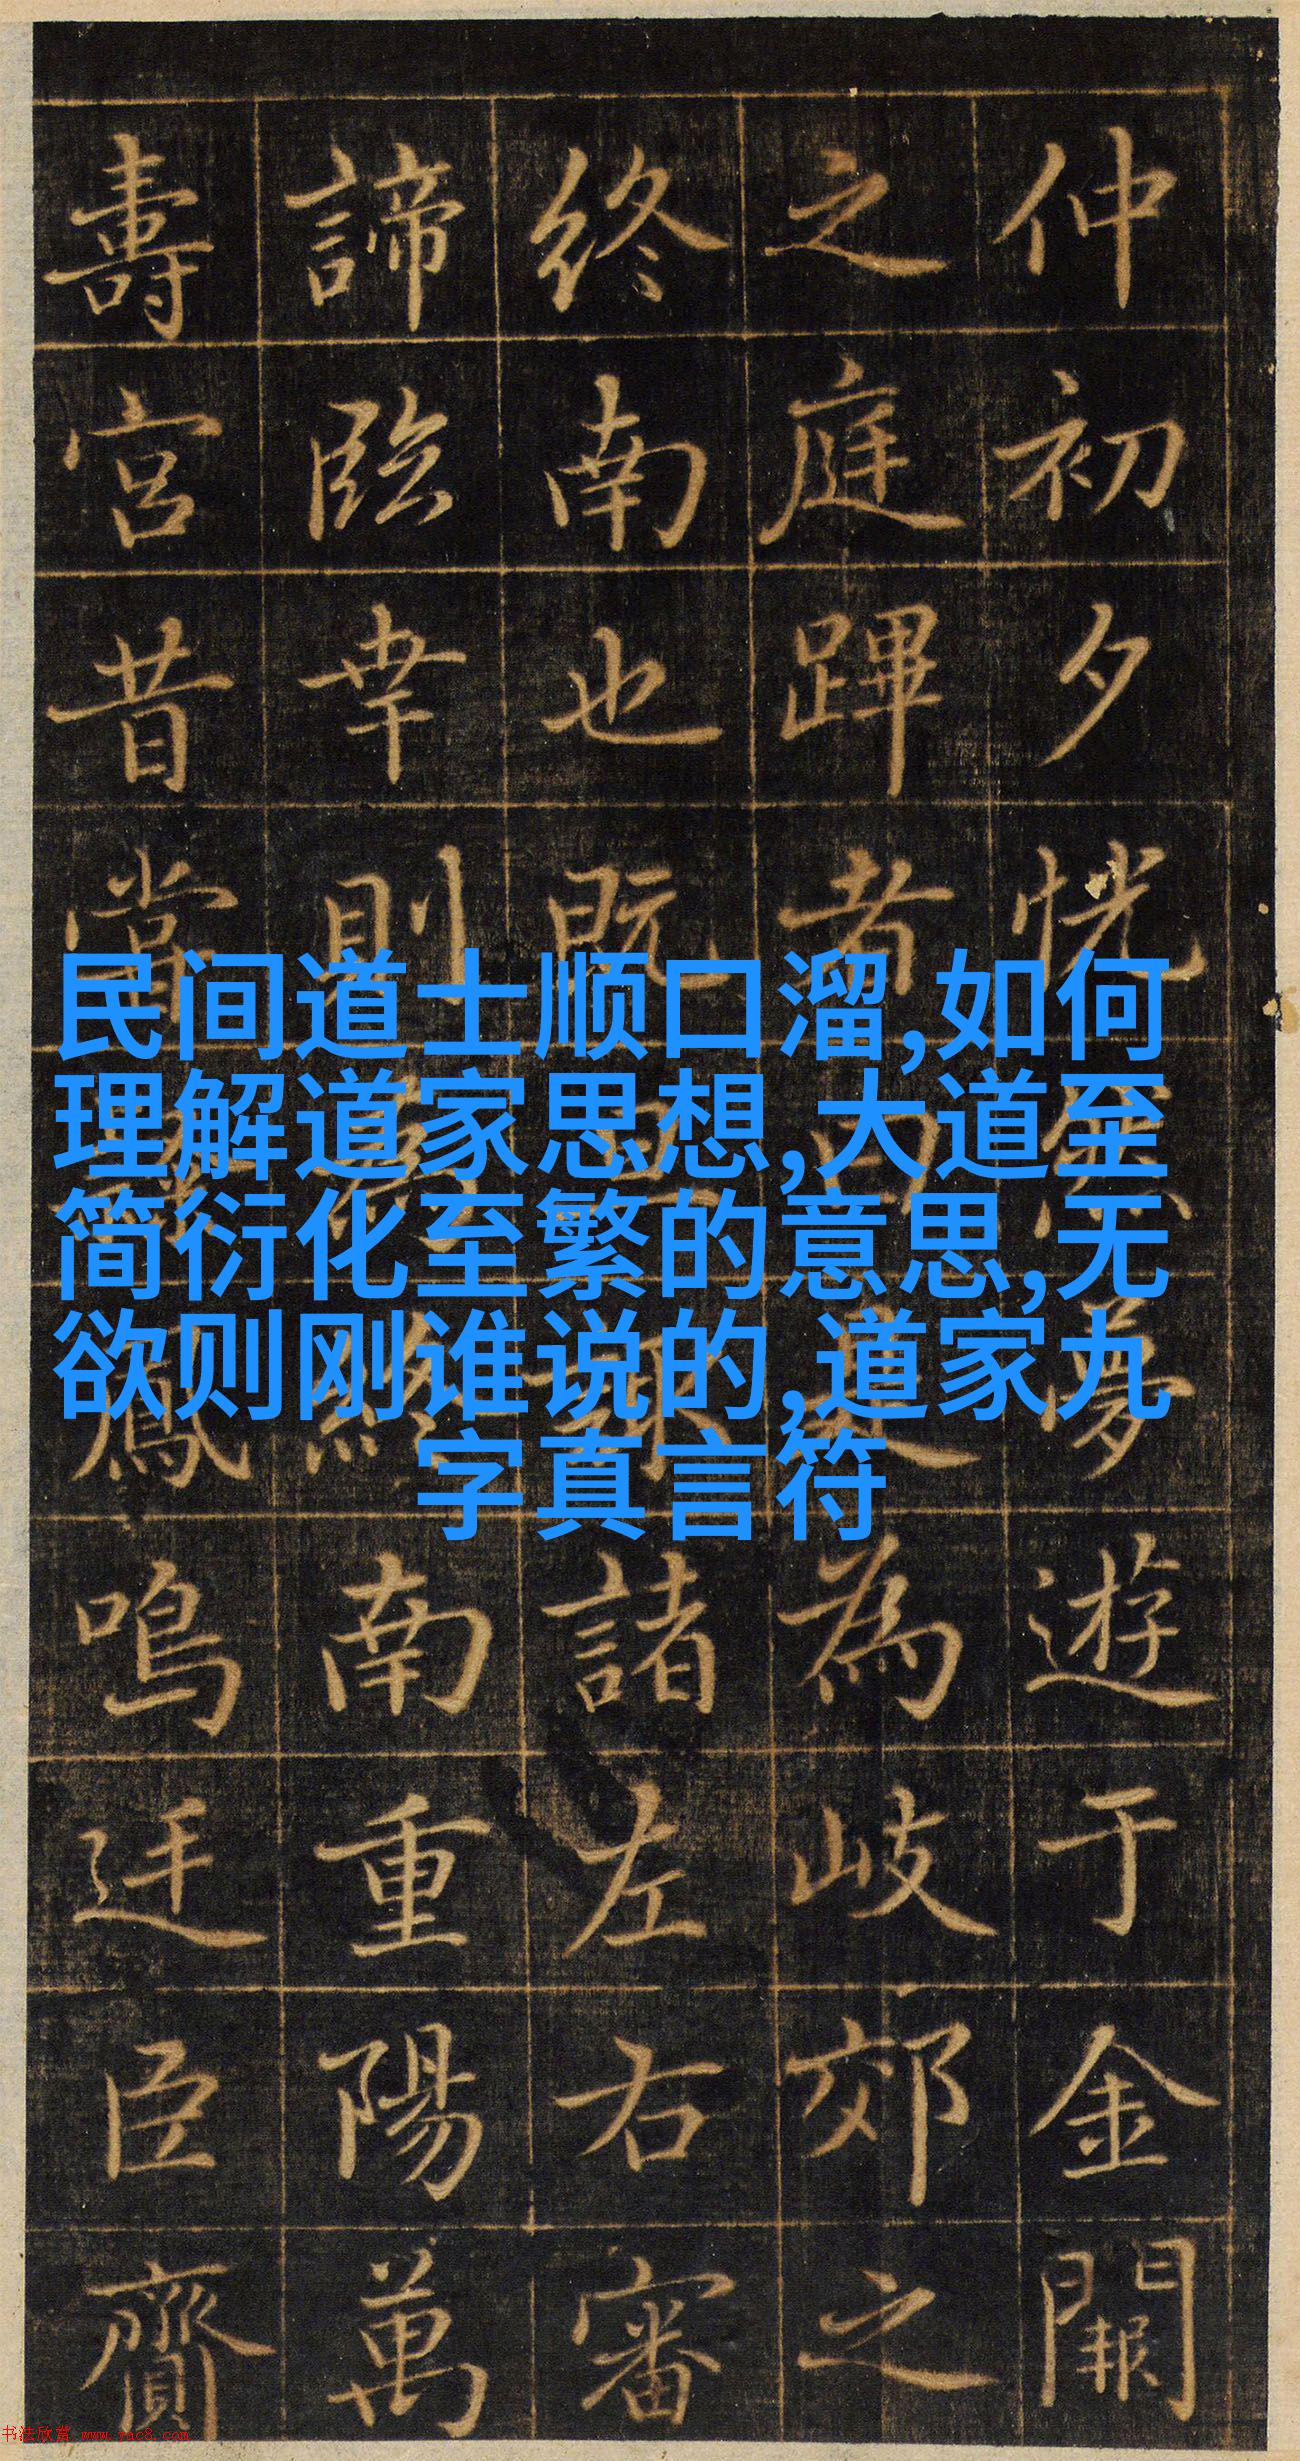 仲初夕恍然夢遊于金闕
之庭蹕者曰為岐郊之
終南也既諸左右審
諦臨幸則終南重陽萬
壽宮昔常鳳鳴迓臣齎
民间道士顺口溜,如何
理解道家思想,大道至
简衍化至繁的意思,无
欲则刚谁说的,道家九
字真言符
书法欣赏 www.yac8.com